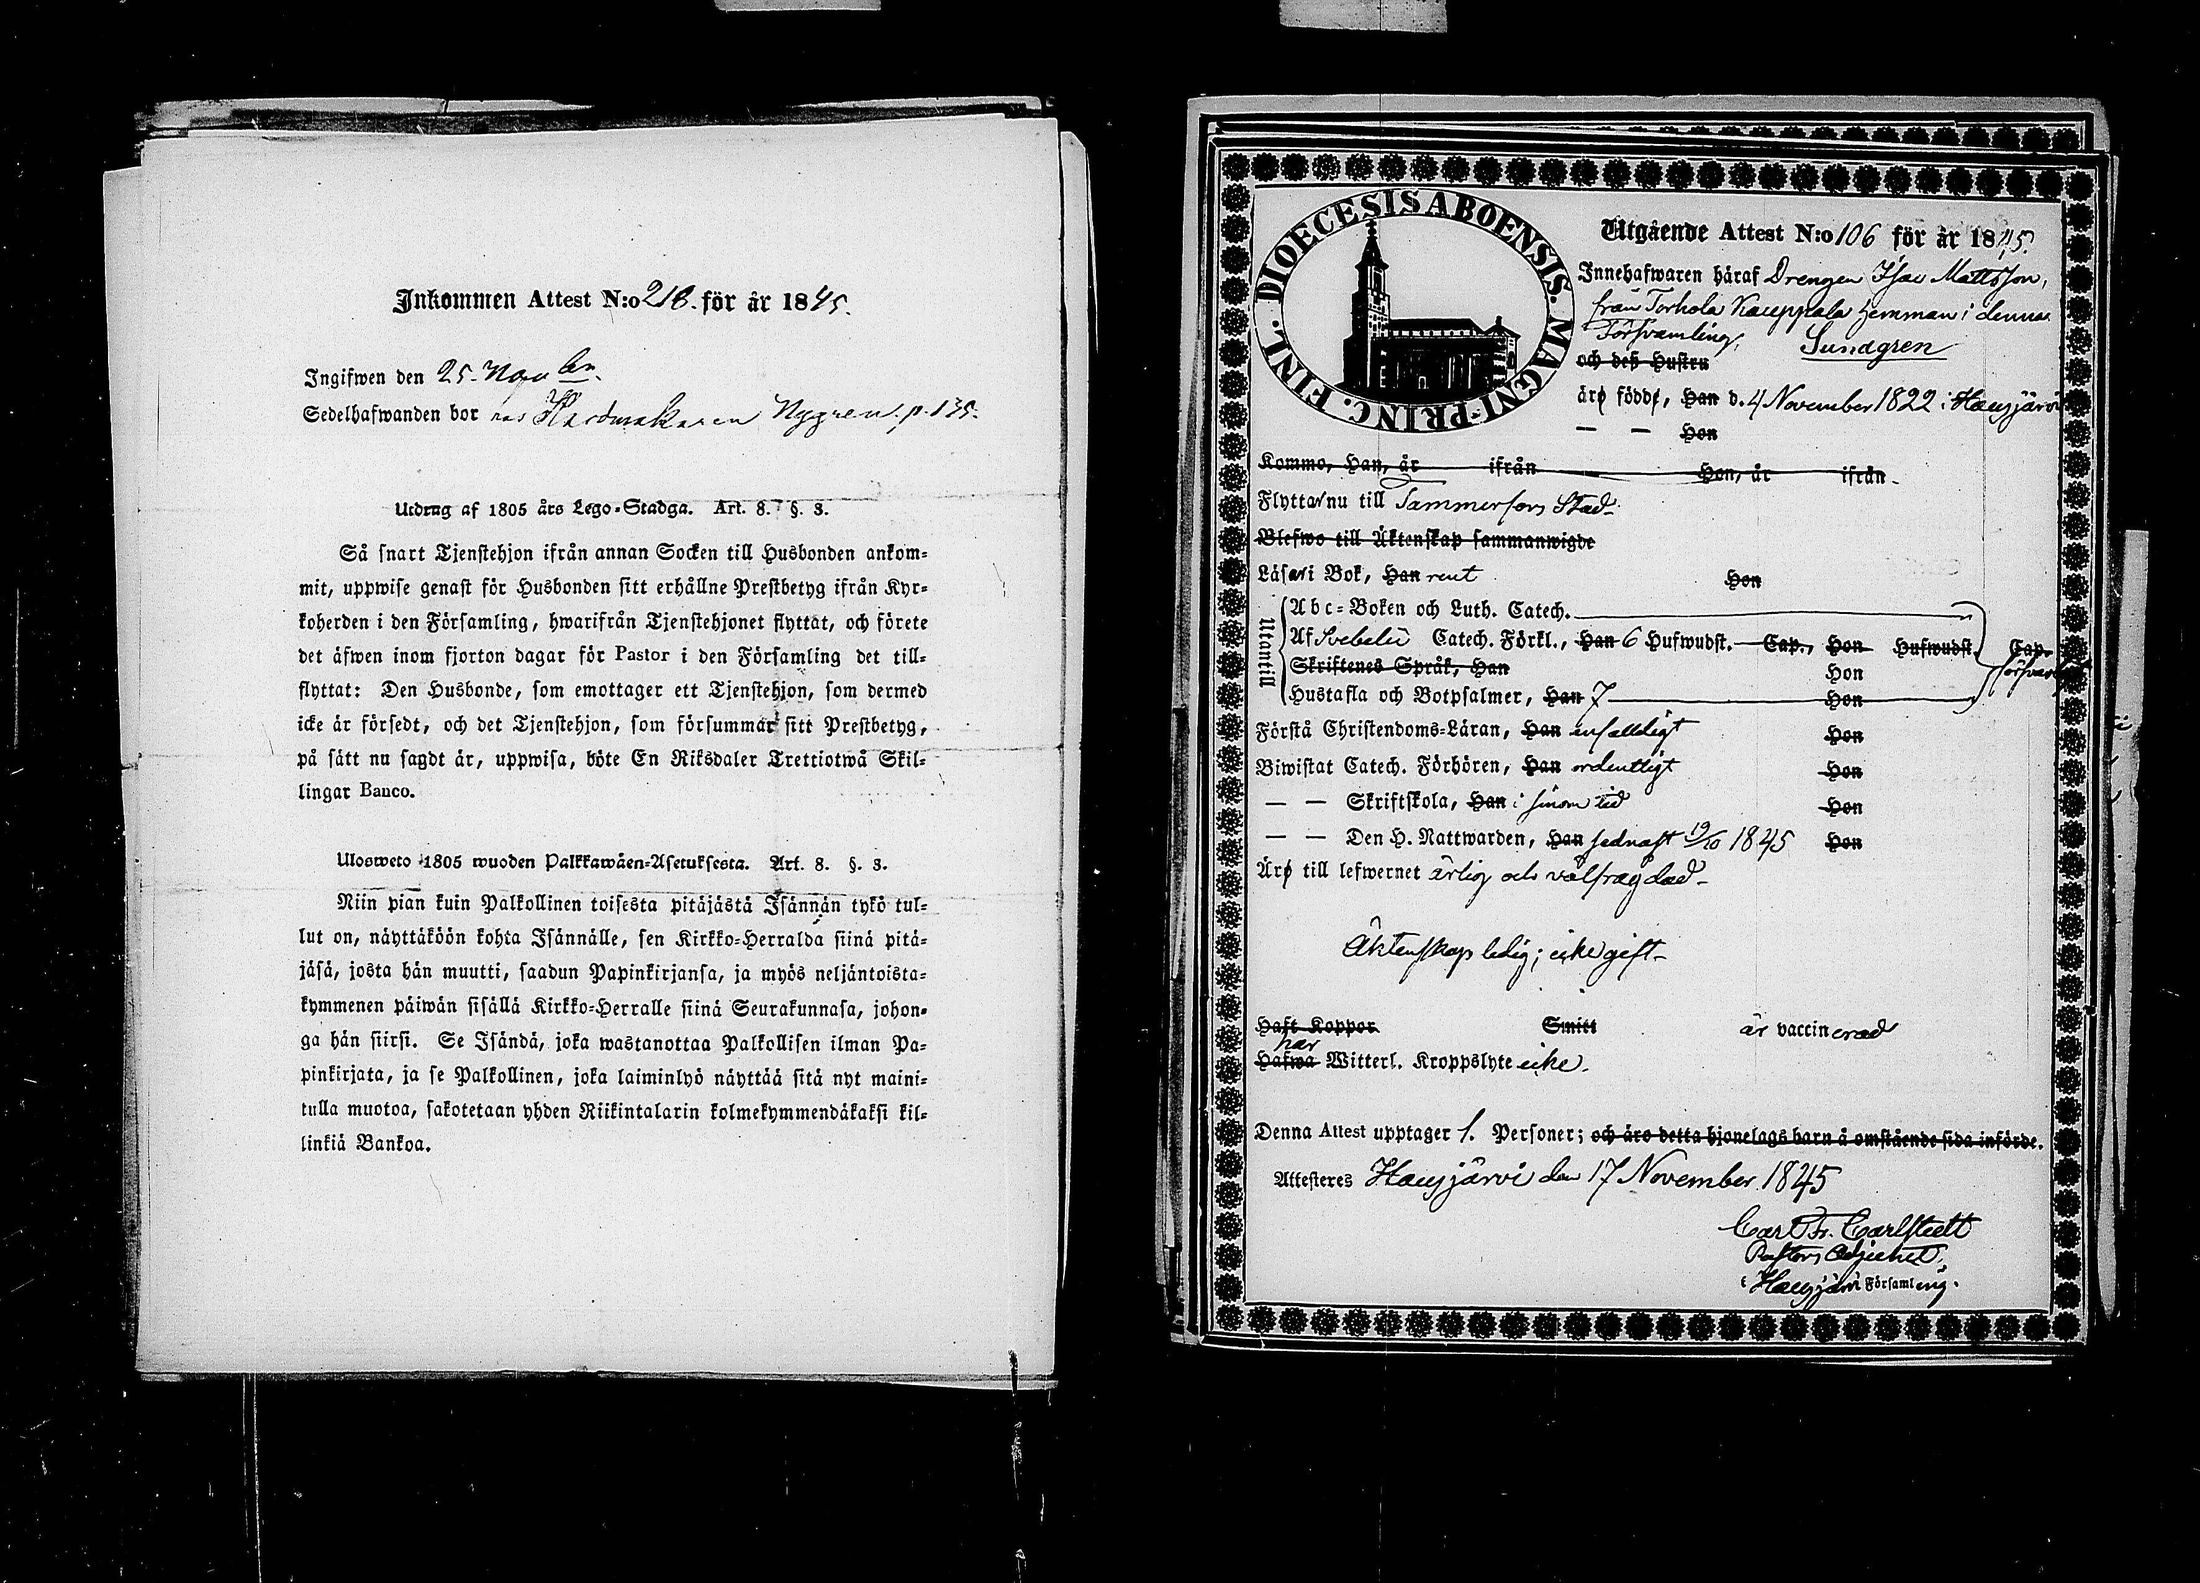 Inkommen Attest N:o 218. för år 1845.
Ingifwen den 25. Novbr.
Sedelhafwanden bor hos Nygren. p. 135.
Utdrag af 1805 års Lego-Stadga. Art. 8. §. 3.
Så snart Tjenstehjon ifrån annan Socken till Husbonden ankom-
mit, uppwise genast för Husbonden sitt erhållne Prestbetyg ifrån Kyr-
koherden i den Församling, hwarifrån Tjenstehjonet flyttat, och förete
det äfwen inom fjorton dagar för Pastor i den Församling det till-
flyttat: Den Husbonde, som emottager ett Tjenstehjon, som dermed
icke är försedt, och det Tjenstehjon, som försummar sitt Prestbetyg,
på sätt nu sagdt är, uppwisa, böte En Riksdaler Trettiotwå Skil-
lingar Banco.
Ulosweto 1805 wuoden Palkkawäen-Asetuksesta. Art. 8. §. 3.
Niin pian kuin Palkollinen toisesta pitäjästä Isännän tykö tul-
lut on, näyttäköön kohta Isännälle, sen Kirkko-Herralda siinä pitä-
jäsä, josta hän muutti, saadun Papinkirjansa, ja myös neljäntoista-
kymmenen päiwän sisällä Kirkko-Herralle siinä Seurakunnasa, johon-
ga hän siirsi. Se Isändä, joka wastanottaa Palkollisen ilman Pa-
pinkirjata, ja se Palkollinen, joka laiminlyö näyttää sitä nyt maini-
tulla muotoa, sakotetaan yhden Riikintalarin kolmekymmendäkaksi kil-
linkiä Bankoa.
DIOECESIS ABOENSIS. MAGNI-PRINC. FINL.
Utgående Attest N:o 106 för år 1845.
Innehafwaren häraf Drengen Isac Mattsson,
från Torhola Kauppala hemman i denna
Församling, Sundgren
och deß Hustru
äro födde, Han d. 4 November 1822 i Hausjärvi
— — Hon
Kommo, Han, år ifrån Hon, år ifrån
Flyttar nu till Tammerfors Stad.
Blefwo till Äktenskap sammanwigde
Läser i Bok, Han rent Hon
Utantill
Abc-Boken och Luth. Catech.
Af Svebelii Catech. Förkl., Han 6 Hufwudst. Cap., Hon Hufwudst. Cap.
försvarl
Skriftenes Språk, Han Hon
Hustafla och Botpsalmer, Han 7 Hon
Förstå Christendoms-Läran, Han enfalldigt Hon
Biwistat Catech. Förhören, Han ordentligt Hon
— — Skriftskola, Han i sinom tid Hon
— — Den H. Nattwarden, Han sednast 19/10 1845 Hon
Äro till lefwernet ärlig och välfrägdad
Äktenskaps ledig; icke gift
Haft Koppor Smitt är vaccinerad
har
Hafwa Witterl. Kroppslyte icke.
Denna Attest upptager 1. Personer; och äro detta hjonelags barn å omstående sida införde.
Attesteres Hausjärvi den 17 November 1845
Carl Fr. Carlstedt
Pastors Adjunct
i Hausjärvi Församling.